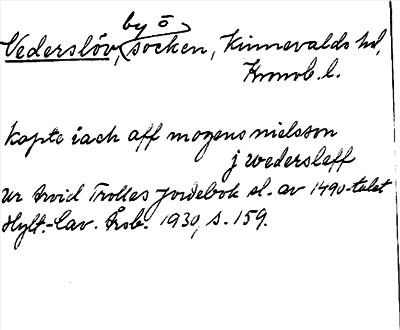 by ō
Vederslöv, socken, Kinnevalds hd,
Kronob. l.
Kopte iach aff mogens nielsson
j wedersleff
Ur Arvid Trolles jordebok sl. av 1490-talet
Hylt.-Cav. Årsb. 1930, s. 159.